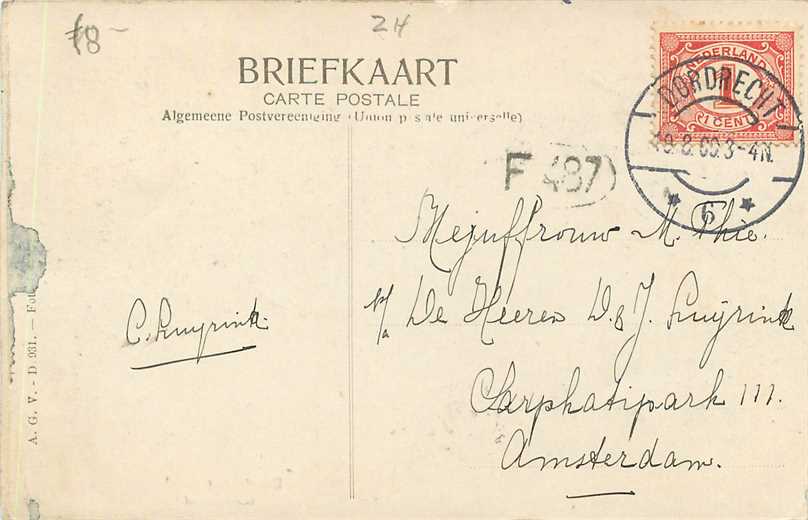 24
BRIEFKAART
CARTE POSTALE
Algemeene Postvereeniging (Union postale universelle)
NEDERLAND
1
1 CENT
DORDRECHT
3-4N.
6
F 487
Mejuffrouw M. Thie.
p/a De Heeren D. & J. Luyrink
Sarphatipark 111.
Amsterdam.
C. Luyrink.
A. G. V. - D. 931. — Fot